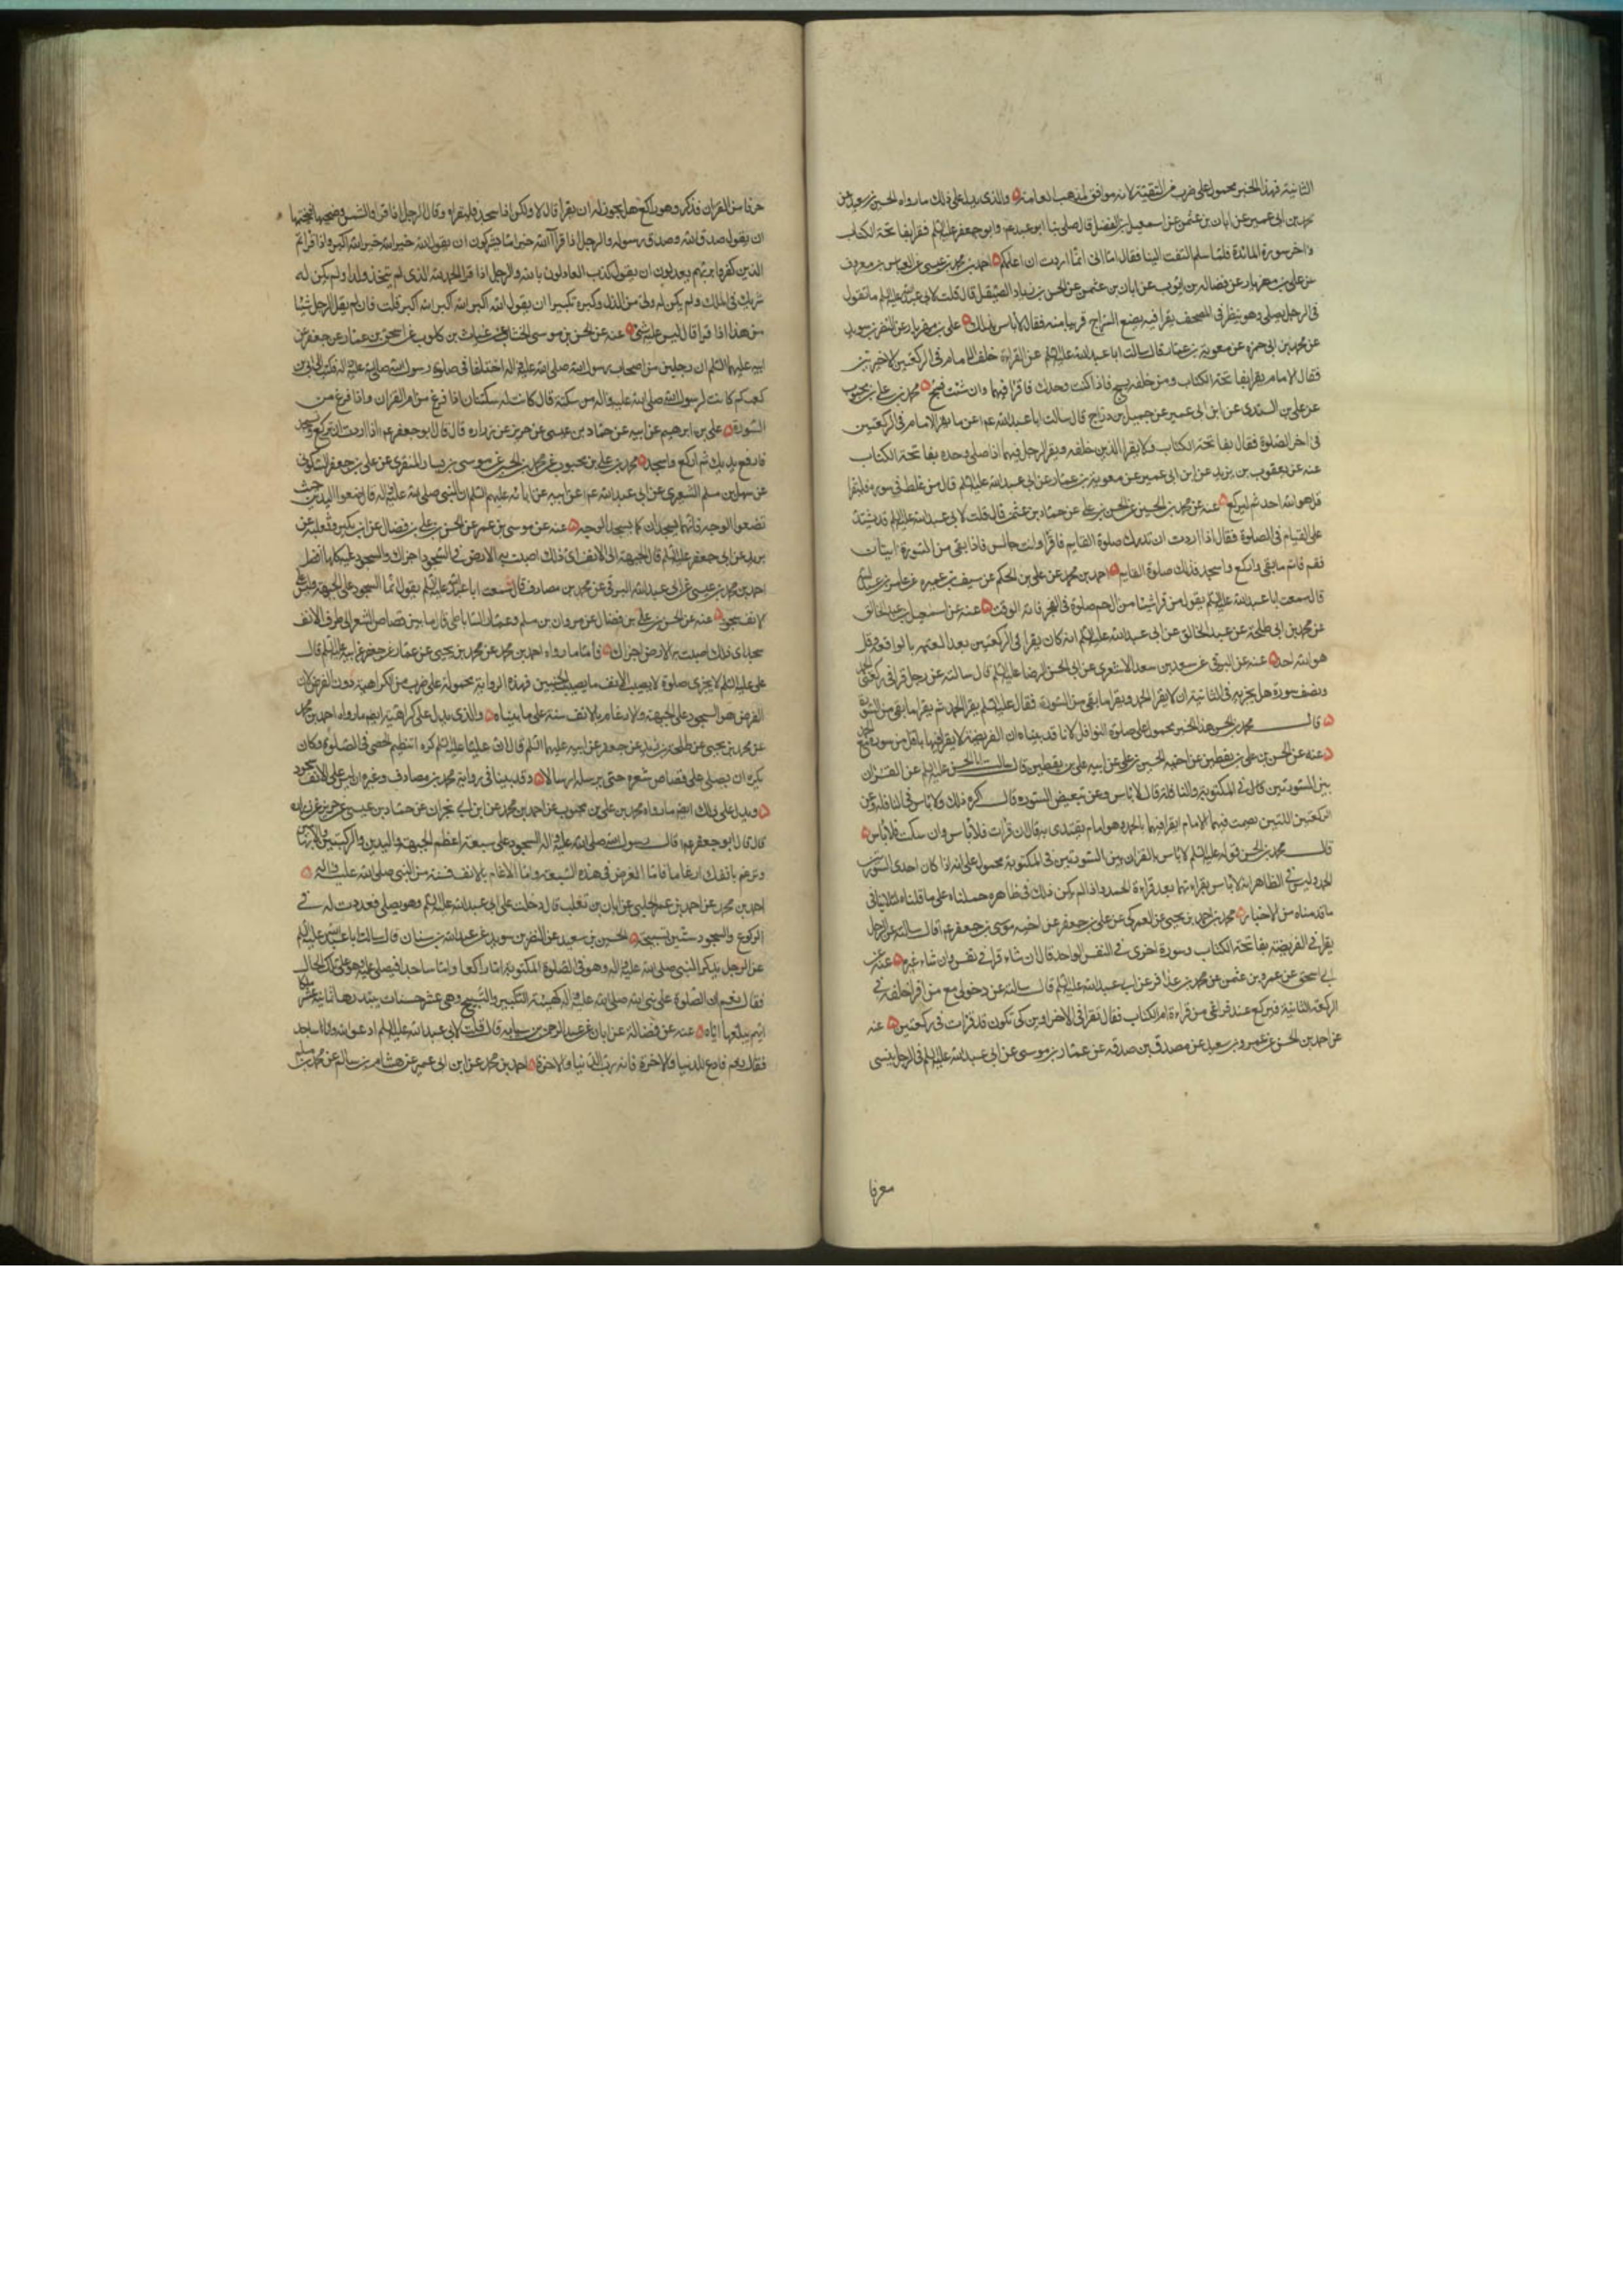 الثانية فهذا الخبر محمول على ضرب من التقية لانه موافق لمذهب العامة والذى يدل على ذلك ما رواه الحسين بن سعيد عن
محمد بن ابى عمير عن ابان بن عثمن عن اسمعيل بن الفضل قال صلى بنا ابو عبد الله او ابو جعفر عليه السلم فقرا بفاتحة الكتاب
واخر سورة المائدة فلما سلم التفت الينا فقال اما انى انما اردت ان اعلمكم احمد بن محمد بن عيسى عن العباس بن معروف
عن على بن مهزيار عن فضاله بن ايوب عن ابان بن عثمن عن الحسن بن زياد الصيقل قال قلت لابى عبد الله عليه السلم ما تقول
فى الرجل يصلى وهو ينظر فى المصحف يقرا فيه يضع السراج قريبا منه فقال لا باس بذلك على بن مهزيار عن النضر بن سويد
عن محمد بن ابى حمزه عن معوية بن عمار قال سالت ابا عبد الله عليه السلم عن القراءة خلف الامام فى الركعتين الاخيرتين
فقال الامام يقرا بفاتحة الكتاب ومن خلفه يسبح فاذا كنت وحدك فاقرا فيهما وان شئت فسبح محمد بن على بن محبوب
عن على بن السندى عن ابن ابى عمير عن جميل بن دراج قال سالت ابا عبد الله ع عن ما يقرا الامام فى الركعتين
فى اخر الصلوة فقال بفاتحة الكتاب ولا يقرا الذين خلفه ويقرا الرجل فيهما اذا صلى وحده بفاتحة الكتاب
عنه عن يعقوب بن يزيد عن ابن ابى عمير عن معوية بن عمار عن ابى عبد الله عليه السلم قال من غلط فى سوره فليقرا
قل هو الله احد ثم ليركع عنه عن محمد بن الحسين عن الحسن بن على عن حماد بن عثمن قال قلت لابى عبد الله عليه السلم قد يشتد
على القيام فى الصلوة فقال اذا اردت ان تدرك صلوة القايم فاقرا وانت جالس فاذا بقى من السورة ايتان
فقم فاتم ما بقى واركع واسجد فذلك صلوة القايم احمد بن محمد عن على بن الحكم عن سيف بن عميره عن عامر بن عبد الله
قال سمعت ابا عبد الله عليه السلم يقول من قرا شيئا من ال حم صلوة فى الفجر فاته الوقت عنه عن اسمعيل بن عبد الخالق
عن محمد بن ابى طلحة عن عبد الخالق عن ابى عبد الله عليه السلم انه كان يقرا فى الركعتين بعد العتمه بالواقعة وقل
هو الله احد عنه عن البرقى عن سعد بن سعد الاشعرى عن ابى الحسن الرضا عليه السلم قال سالته عن رجل قرا فى ركعة الحمد
ونصف سورة هل يجزيه فى الثانية ان لا يقرا الحمد ويقرا ما بقى من السورة فقال عليه السلم يقرا الحمد ثم يقرا ما بقى من السورة
قال محمد بن الحسن هذا الخبر محمول على صلوة النوافل لانا قد بينا ان الفريضة لا يقرا فيها باقل من سورة مع الحمد
عنه عن الحسن بن على بن يقطين عن اخيه الحسين بن على عن ابيه على بن يقطين قال سالت ابا الحسن عليه السلم عن القران
بين السورتين فى المكتوبة والنافلة قال لا باس وعن تبعيض السورة قال اكره ذلك ولا باس فى النافلة وعن
الركعتين اللتين يصمت فيهما الامام ايقرا فيهما بالحمد وهو امام يقتدى به قال ان قرات فلا باس وان سكت فلا باس
قال محمد بن الحسن قوله عليه السلم لا باس بالقران بين السورتين فى المكتوبة محمول على انه اذا كان احدى السورتين
الحمد وليس فى الظاهر انه لا باس بقراءتهما بعد قراءة الحمد واذا لم يكن ذلك فى ظاهره حملناه على ما قلناه لئلا ينافى
ما قدمناه من الاخبار محمد بن احمد بن يحيى عن العمركى عن على بن جعفر عن اخيه موسى بن جعفر ع قال سالته عن الرجل
يقرا فى الفريضة بفاتحة الكتاب وسورة اخرى فى النفس الواحد قال ان شاء قرا فى نفس وان شاء غيره عنه عن
ابى اسحق عن عمرو بن عثمن عن محمد بن عذافر عن ابى عبد الله عليه السلم قال سالته عن دخولى مع من اقرا خلفه فى
الركعة الثانية فيركع عند فراغى من قراءة ام الكتاب فقال تقرا فى الاخراوين كى تكون قد قرات فى ركعتين عنه
عن احمد بن الحسن عن عمرو بن سعيد عن مصدق بن صدقه عن عمار بن موسى عن ابى عبد الله عليه السلم فى الرجل ينسى
حرفا من القران فذكر وهو راكع هل يجوز له ان يقرا قال لا ولكن اذا سجد فليقراه وقال الرجل اذا قرا والشمس وضحيها فيختمها
ان يقول صدق الله وصدق رسوله والرجل اذا قرا آلله خير اما يشركون ان يقول الله خير الله خير الله اكبر واذا قرا ثم
الذين كفروا بربهم يعدلون ان يقول كذب العادلون بالله والرجل اذا قرا الحمد لله الذى لم يتخذ ولدا ولم يكن له
شريك فى الملك ولم يكن له ولى من الذل وكبره تكبيرا ان يقول الله اكبر الله اكبر الله اكبر قلت فان لم يقل الرجل شيئا
من هذا اذا قرا قال ليس عليه شئ عنه عن الحسن بن موسى الخشاب عن غياث بن كلوب عن اسحق بن عمار عن جعفر عن
ابيه عليهما السلم ان رجلين من اصحاب رسول الله صلى الله عليه واله اختلفا فى صلوة رسول الله صلى الله عليه واله فكتب الى ابى بن
كعب كم كانت لرسول الله صلى الله عليه واله من سكتة قال كانت له سكتتان اذا فرغ من ام القران واذا فرغ من
السورة على بن ابرهيم عن ابيه عن حماد بن عيسى عن حريز عن زراره قال قال ابو جعفر ع اذا اردت ان تركع وتسجد
فارفع يديك ثم اركع واسجد محمد بن على بن محبوب عن محمد بن الحسين عن موسى بن يسار المنقرى عن على بن جعفر السكونى
عن اسمعيل بن مسلم الشعيرى عن ابى عبد الله ع عن ابيه عن ابائه عليهم السلم ان النبى صلى الله عليه واله قال ضعوا اليدين حيث
تضعوا الوجه فانهما يسجدان كما يسجد الوجه عنه عن موسى بن عمر عن الحسن بن على بن فضال عن ابن بكير وثعلبه عن
بريد عن ابى جعفر عليه السلم قال الجبهة الى الانف اى ذلك اصبت به الارض فى السجود اجزاك والسجود عليه كله افضل
احمد بن محمد بن عيسى عن ابى عبد الله البرقى عن محمد بن مصادف قال سمعت ابا عبد الله عليه السلم يقول انما السجود على الجبهة وليس على
الانف سجود عنه عن الحسن بن على بن فضال عن مروان بن مسلم وعمار الساباطى قال ما بين قصاص الشعر الى طرف الانف
مسجد اى ذلك اصبت به الارض اجزاك فاما ما رواه احمد بن محمد عن محمد بن يحيى عن عمار عن جعفر عن ابيه عليه السلم قال قال
على عليه السلم لا تجزى صلوة لا يصيب الانف ما يصيب الجبين فهذه الرواية محمولة على ضرب من الكراهية دون الفرض لان
الفرض هو السجود على الجبهة والارغام بالانف سنة على ما بيناه والذى يدل على كراهته ايضا ما رواه احمد بن محمد
عن محمد بن يحيى عن طلحة بن زيد عن جعفر عن ابيه عليهما السلم قال ان عليا عليه السلم كره تنظيم الحصى فى الصلوة وكان
يكره ان يصلى على قصاص شعره حتى يرسله ارسالا وقد بينا فى رواية محمد بن مصادف وغيره ان ليس على الانف سجود
ويدل على ذلك ايضا ما رواه محمد بن على بن محبوب عن احمد بن محمد عن ابن ابى نجران عن حماد بن عيسى عن حريز عن زراره
قال قال ابو جعفر ع قال رسول الله صلى الله عليه واله السجود على سبعة اعظم الجبهة واليدين والركبتين والابهامين
وترغم بانفك ارغاما فاما الفرض فهذه السبعة واما الارغام بالانف فسنة من النبى صلى الله عليه واله
احمد بن محمد عن احمد بن عمر الحلبى عن ابان بن تغلب قال دخلت على ابى عبد الله عليه السلم وهو يصلى فعددت له فى
الركوع والسجود ستين تسبيحة الحسين بن سعيد عن النضر بن سويد عن عبد الله بن سنان قال سالت ابا عبد الله عليه السلم
عن الرجل يذكر النبى صلى الله عليه واله وهو فى الصلوة المكتوبة اما راكعا واما ساجدا فيصلى عليه وهو على تلك الحال
فقال نعم ان الصلوة على نبى الله صلى الله عليه واله كهيئة التكبير والتسبيح وهى عشر حسنات يبتدرها ثمانية عشر ملكا
ايهم يبلغها اياه عنه عن فضالة عن ابان عن عبد الرحمن بن سيابه قال قلت لابى عبد الله عليه السلم ادعو الله وانا ساجد
فقال نعم فادع للدنيا والاخرة فانه رب الدنيا والاخرة احمد بن محمد عن ابن ابى عمير عن هشام بن سالم عن محمد بن مسلم